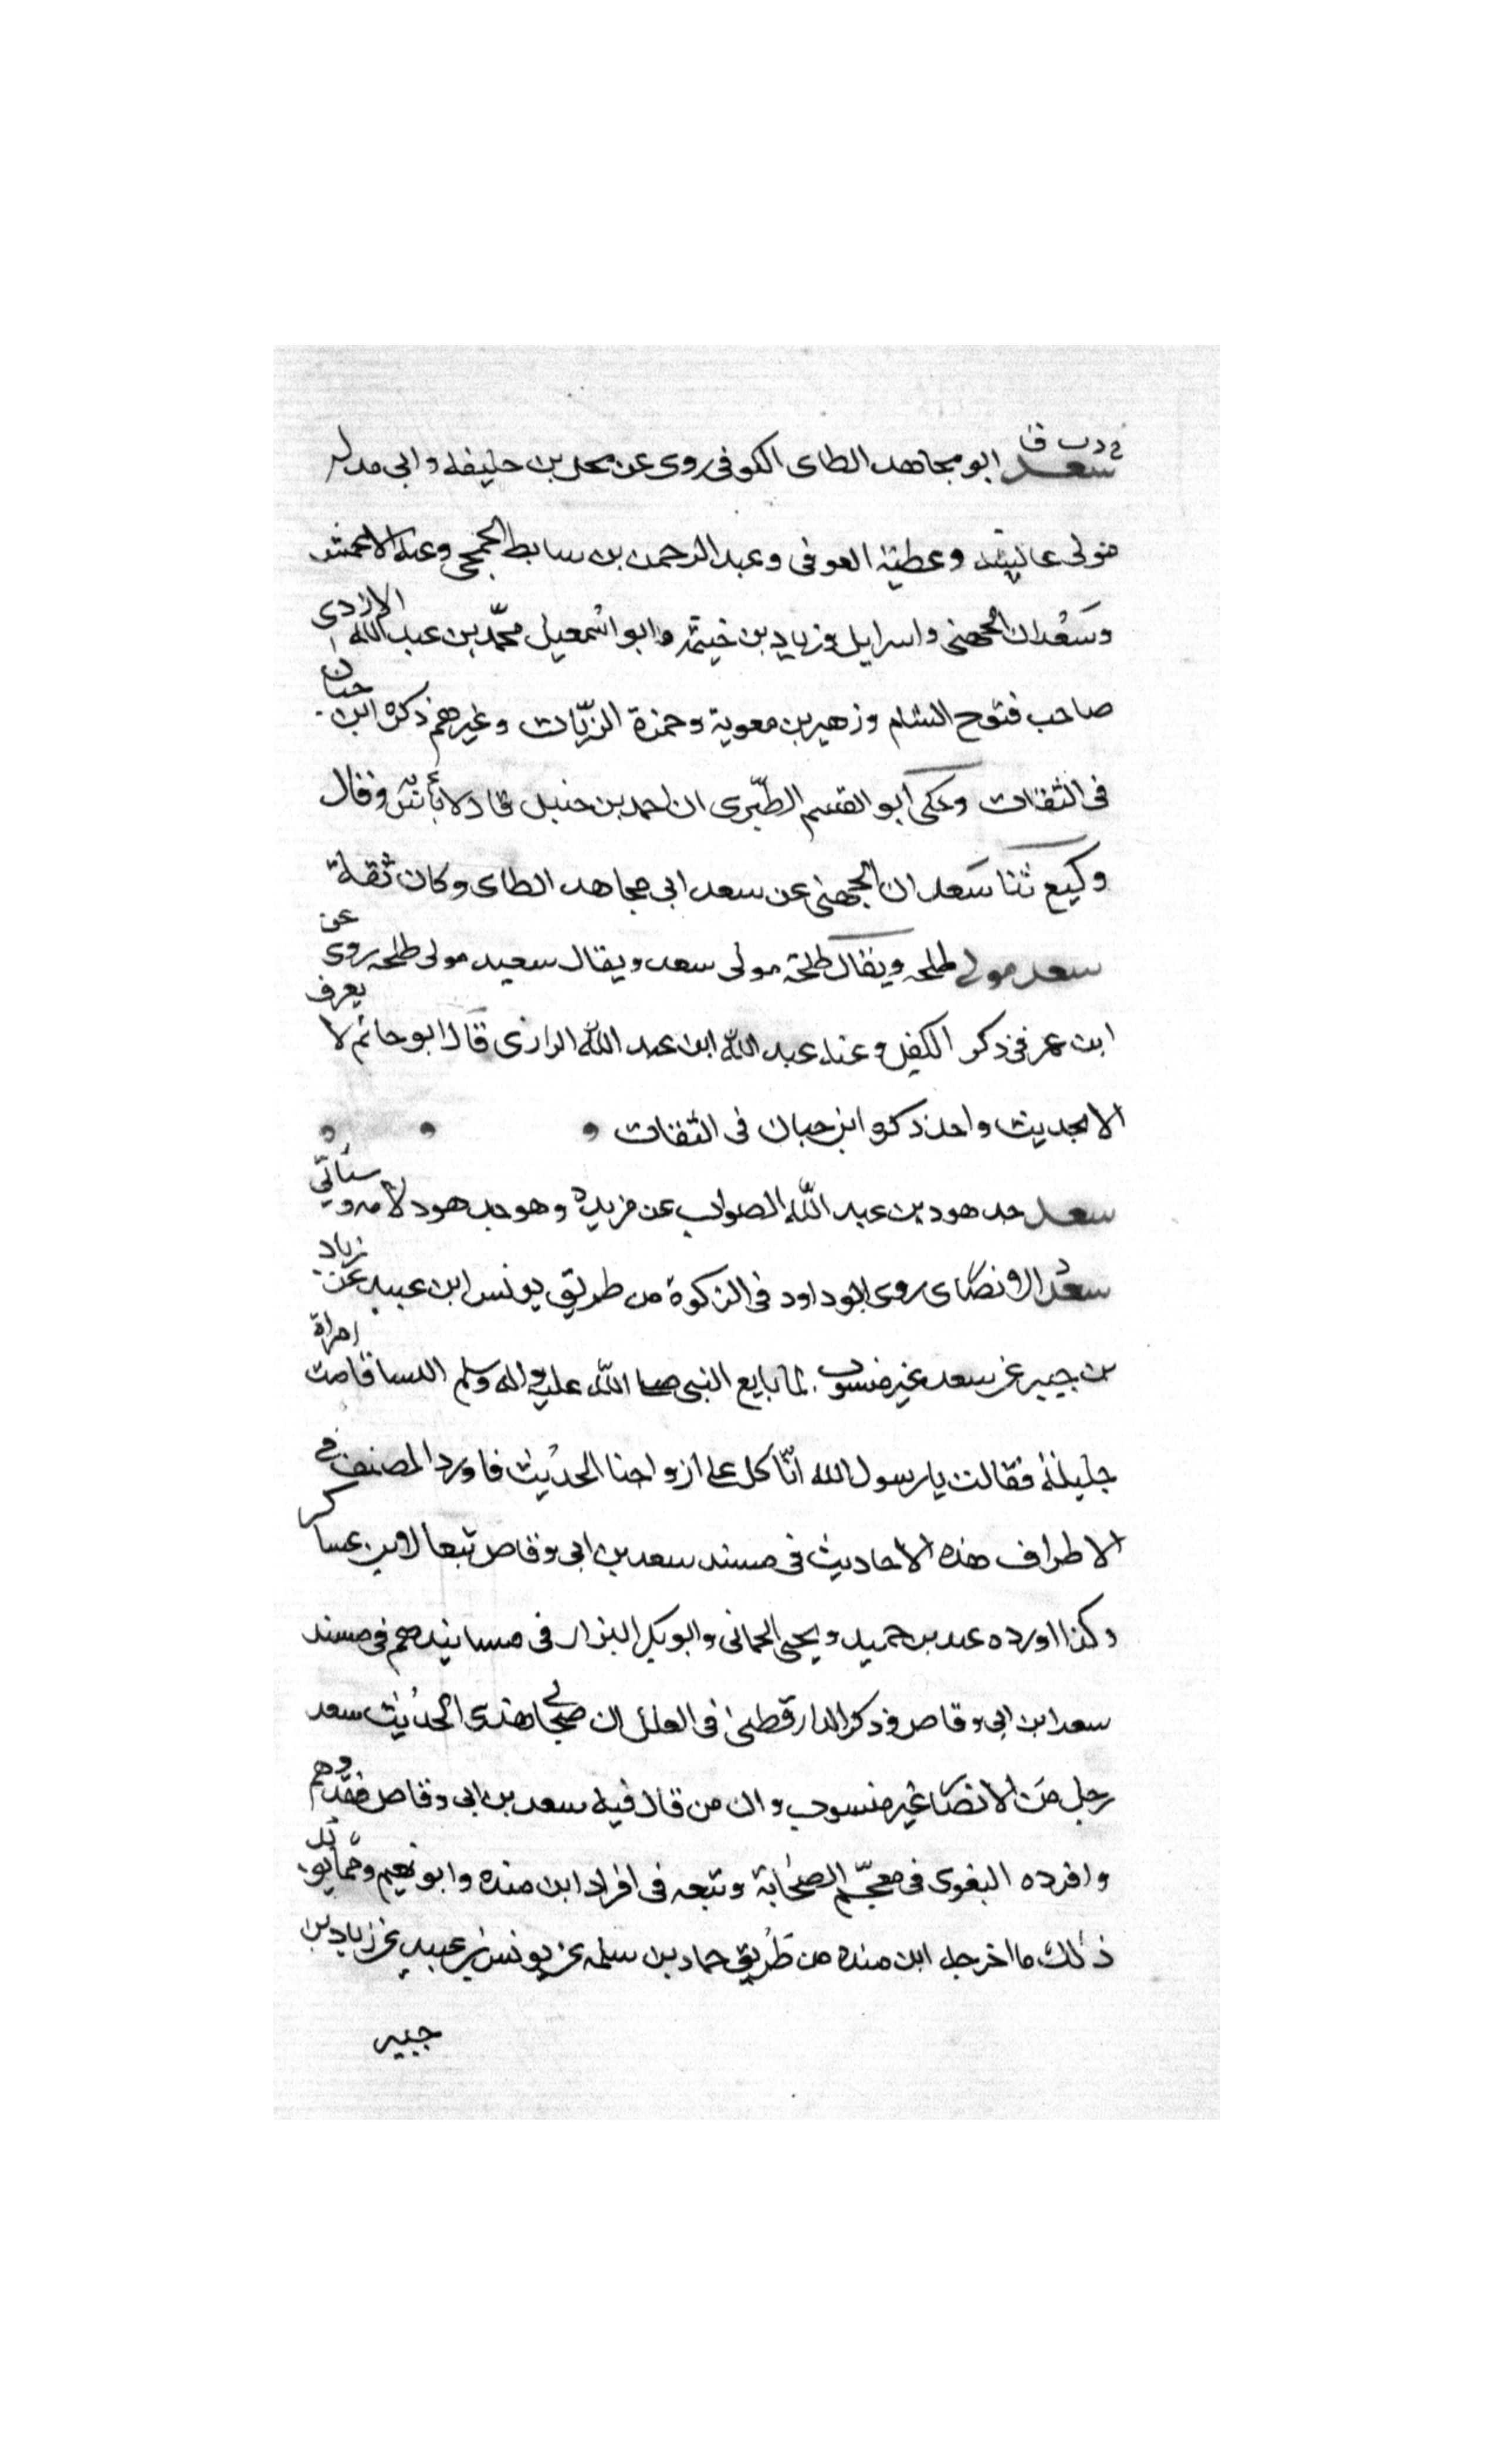 خ د ت ق
سعد ابو مجاهد الطاى الكوفى روى عن محل بن خليفه وابى مدله
مولى عايشه وعطية العوفى وعبد الرحمن بن سابط الجمحى وعنه الاعمش
وسعدان الجهنى واسرايل وزياد بن خيثمه وابو اسمعيل محمد بن عبد الله الازدى
صاحب فتوح الشام وزهير بن معوية وحمزة الزيات وغيرهم ذكره ابن حبان
فى الثقات وحكى ابو القسم الطبرى ان احمد بن حنبل قال لا بأس به وقال
وكيع ثنا سعدان الجهنى عن سعد ابى مجاهد الطاى وكان ثقة
سعد مولى طلحه ويقال طلحة مولى سعد ويقال سعيد مولى طلحه روى عن
ابن عمر فى ذكر الكفل وعنه عبد الله ابن عبد الله الرازى قال ابو حاتم لا يعرف
الا بحديث واحد ذكره ابن حبان فى الثقات
سعد جد هود بن عبد الله الصواب عن مزيدة وهو جد هود لامه وسيأتى
سعد الانصاى روى ابو داود فى الزكوة من طريق يونس ابن عبيد عن زياد
بن جبير عن سعد غير منسوب لما بايع النبى صلى الله عليه واله وسلم النسا قامت امراة
جليلة فقالت يا رسول الله انا كل على ازواجنا الحديث فاورد المصنف فى
الاطراف هذه الاحاديث فى مسند سعد بن ابى وقاص تبعا لابن عساكر
وكذا اورده عبد بن حميد ويحيى الحمانى وابو بكر البزار فى مسانيدهم فى مسند
سعد ابن ابى وقاص وذكر الدارقطنى فى العلل ان صحابى هذا الحديث سعد
رجل من الانصا غير منسوب وان من قال فيه سعد بن ابى وقاص فقد وهم
وافرده البغوى فى معجم الصحابة وتبعه فى افراد ابن منده وابو نعيم ومما يؤيد
ذلك ما اخرجه ابن منده من طريق حماد بن سلمه عن يونس بن عبيد عن زياد بن
جبير